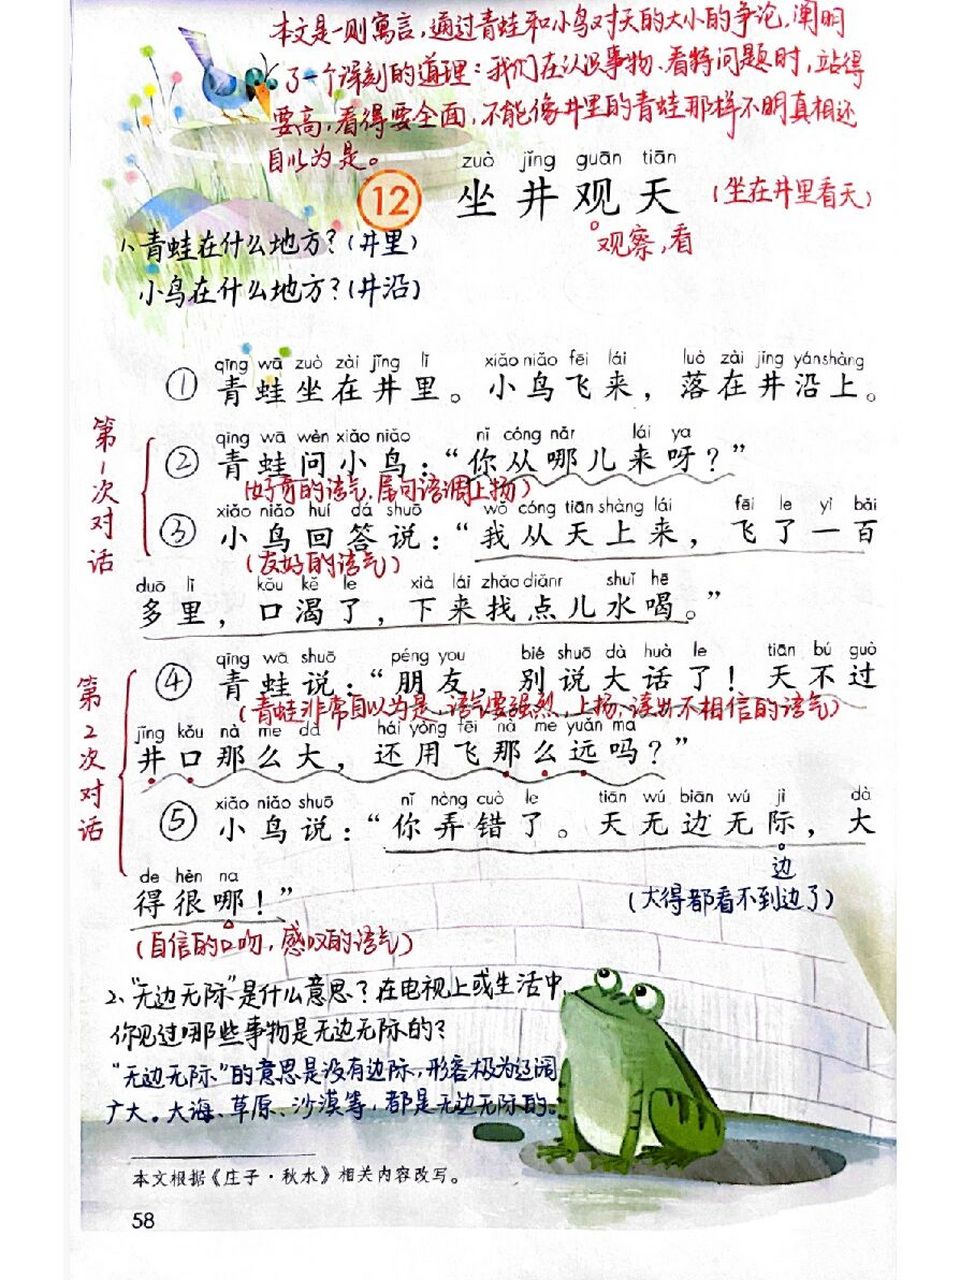 本文是一则寓言,通过青蛙和小鸟对天的大小的争论,阐明
了一个深刻的道理:我们在认识事物、看待问题时,站得
要高,看得要全面,不能像井里的青蛙那样不明真相还
自以为是。
zuò jǐng guān tiān
12 坐井观天 (坐在井里看天)
观察,看
1、青蛙在什么地方?(井里)
小鸟在什么地方?(井沿)
qīng wā zuò zài jǐng lǐ xiǎo niǎo fēi lái luò zài jǐng yán shàng
① 青蛙坐在井里。小鸟飞来,落在井沿上。
第1次对话
qīng wā wèn xiǎo niǎo nǐ cóng nǎr lái ya
② 青蛙问小鸟:“你从哪儿来呀?”
(好奇的语气,尾句语调上扬)
xiǎo niǎo huí dá shuō wǒ cóng tiān shàng lái fēi le yì bǎi
③ 小鸟回答说:“我从天上来,飞了一百
(友好的语气)
duō lǐ kǒu kě le xià lái zhǎo diǎnr shuǐ hē
多里,口渴了,下来找点儿水喝。”
第2次对话
qīng wā shuō péng you bié shuō dà huà le tiān bú guò
④ 青蛙说:“朋友,别说大话了!天不过
(青蛙非常自以为是,语气要强烈,上扬,读出不相信的语气)
jǐng kǒu nà me dà hái yòng fēi nà me yuǎn ma
井口那么大,还用飞那么远吗?”
xiǎo niǎo shuō nǐ nòng cuò le tiān wú biān wú jì dà
⑤ 小鸟说:“你弄错了。天无边无际,大
边
(大得都看不到边了)
de hěn na
得很哪!”
(自信的口吻,感叹的语气)
2、“无边无际”是什么意思?在电视上或生活中
你见过哪些事物是无边无际的?
“无边无际”的意思是没有边际,形容极为辽阔
广大。大海、草原、沙漠等,都是无边无际的。
本文根据《庄子·秋水》相关内容改写。
58